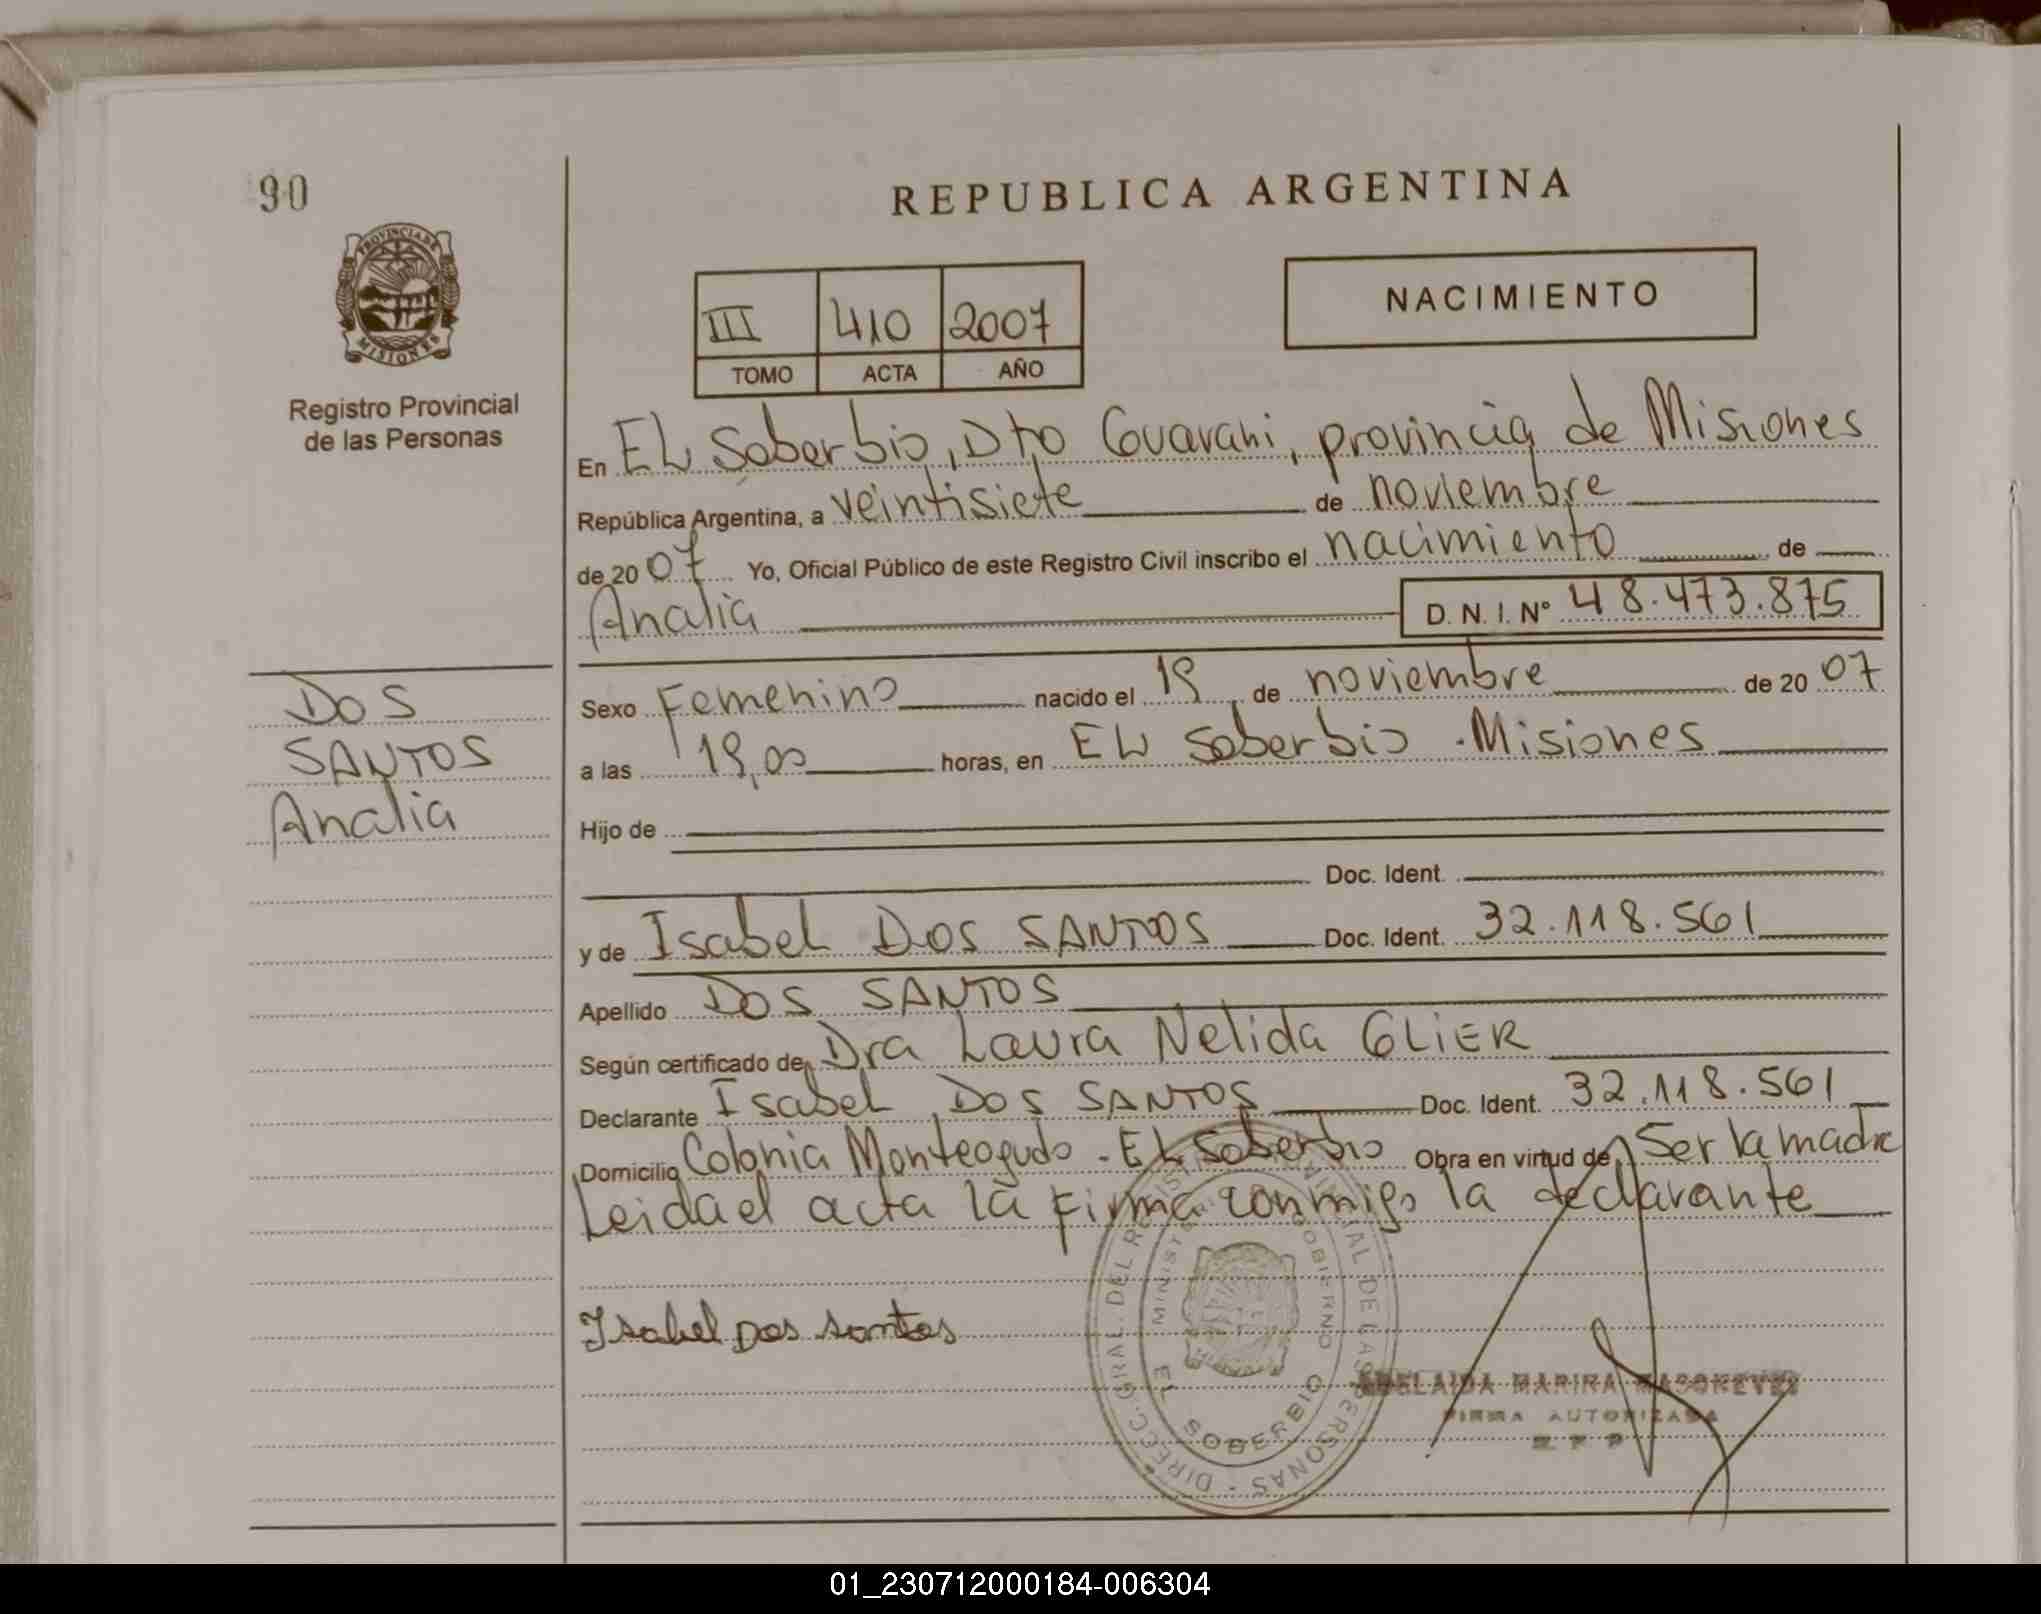 90
REPUBLICA ARGENTINA
PROVINCIA DE
MISIONES
Registro Provincial
de las Personas
NACIMIENTO
III 410 2007
TOMO ACTA AÑO
En EL Soberbio, Dto Guarani, provincia de Misiones
República Argentina, a veintisiete de noviembre
de 20 07 Yo, Oficial Público de este Registro Civil inscribo el nacimiento de
Analia D. N. I. Nº 48.473.875
DOS
SANTOS
Analia
Sexo Femenino nacido el 19 de noviembre de 20 07
a las 19,00 horas, en EL Soberbio - Misiones
Hijo de
Doc. Ident.
y de Isabel DOS SANTOS Doc. Ident. 32.118.561
Apellido DOS SANTOS
Según certificado de Dra Laura Nelida GLIER
Declarante Isabel DOS SANTOS Doc. Ident. 32.118.561
Domicilio Colonia Monteagudo - EL Soberbio Obra en virtud de Ser la madre
Leida el acta la firma conmigo la declarante
Isabel Dos santos
DIRECC. GRAL. DEL REGISTRO PROVINCIAL DE LAS PERSONAS
MINISTERIO GOBIERNO
EL SOBERBIO
ADELAIDA MARIRA
FIRMA AUTORIZADA
R P P
01_230712000184-006304